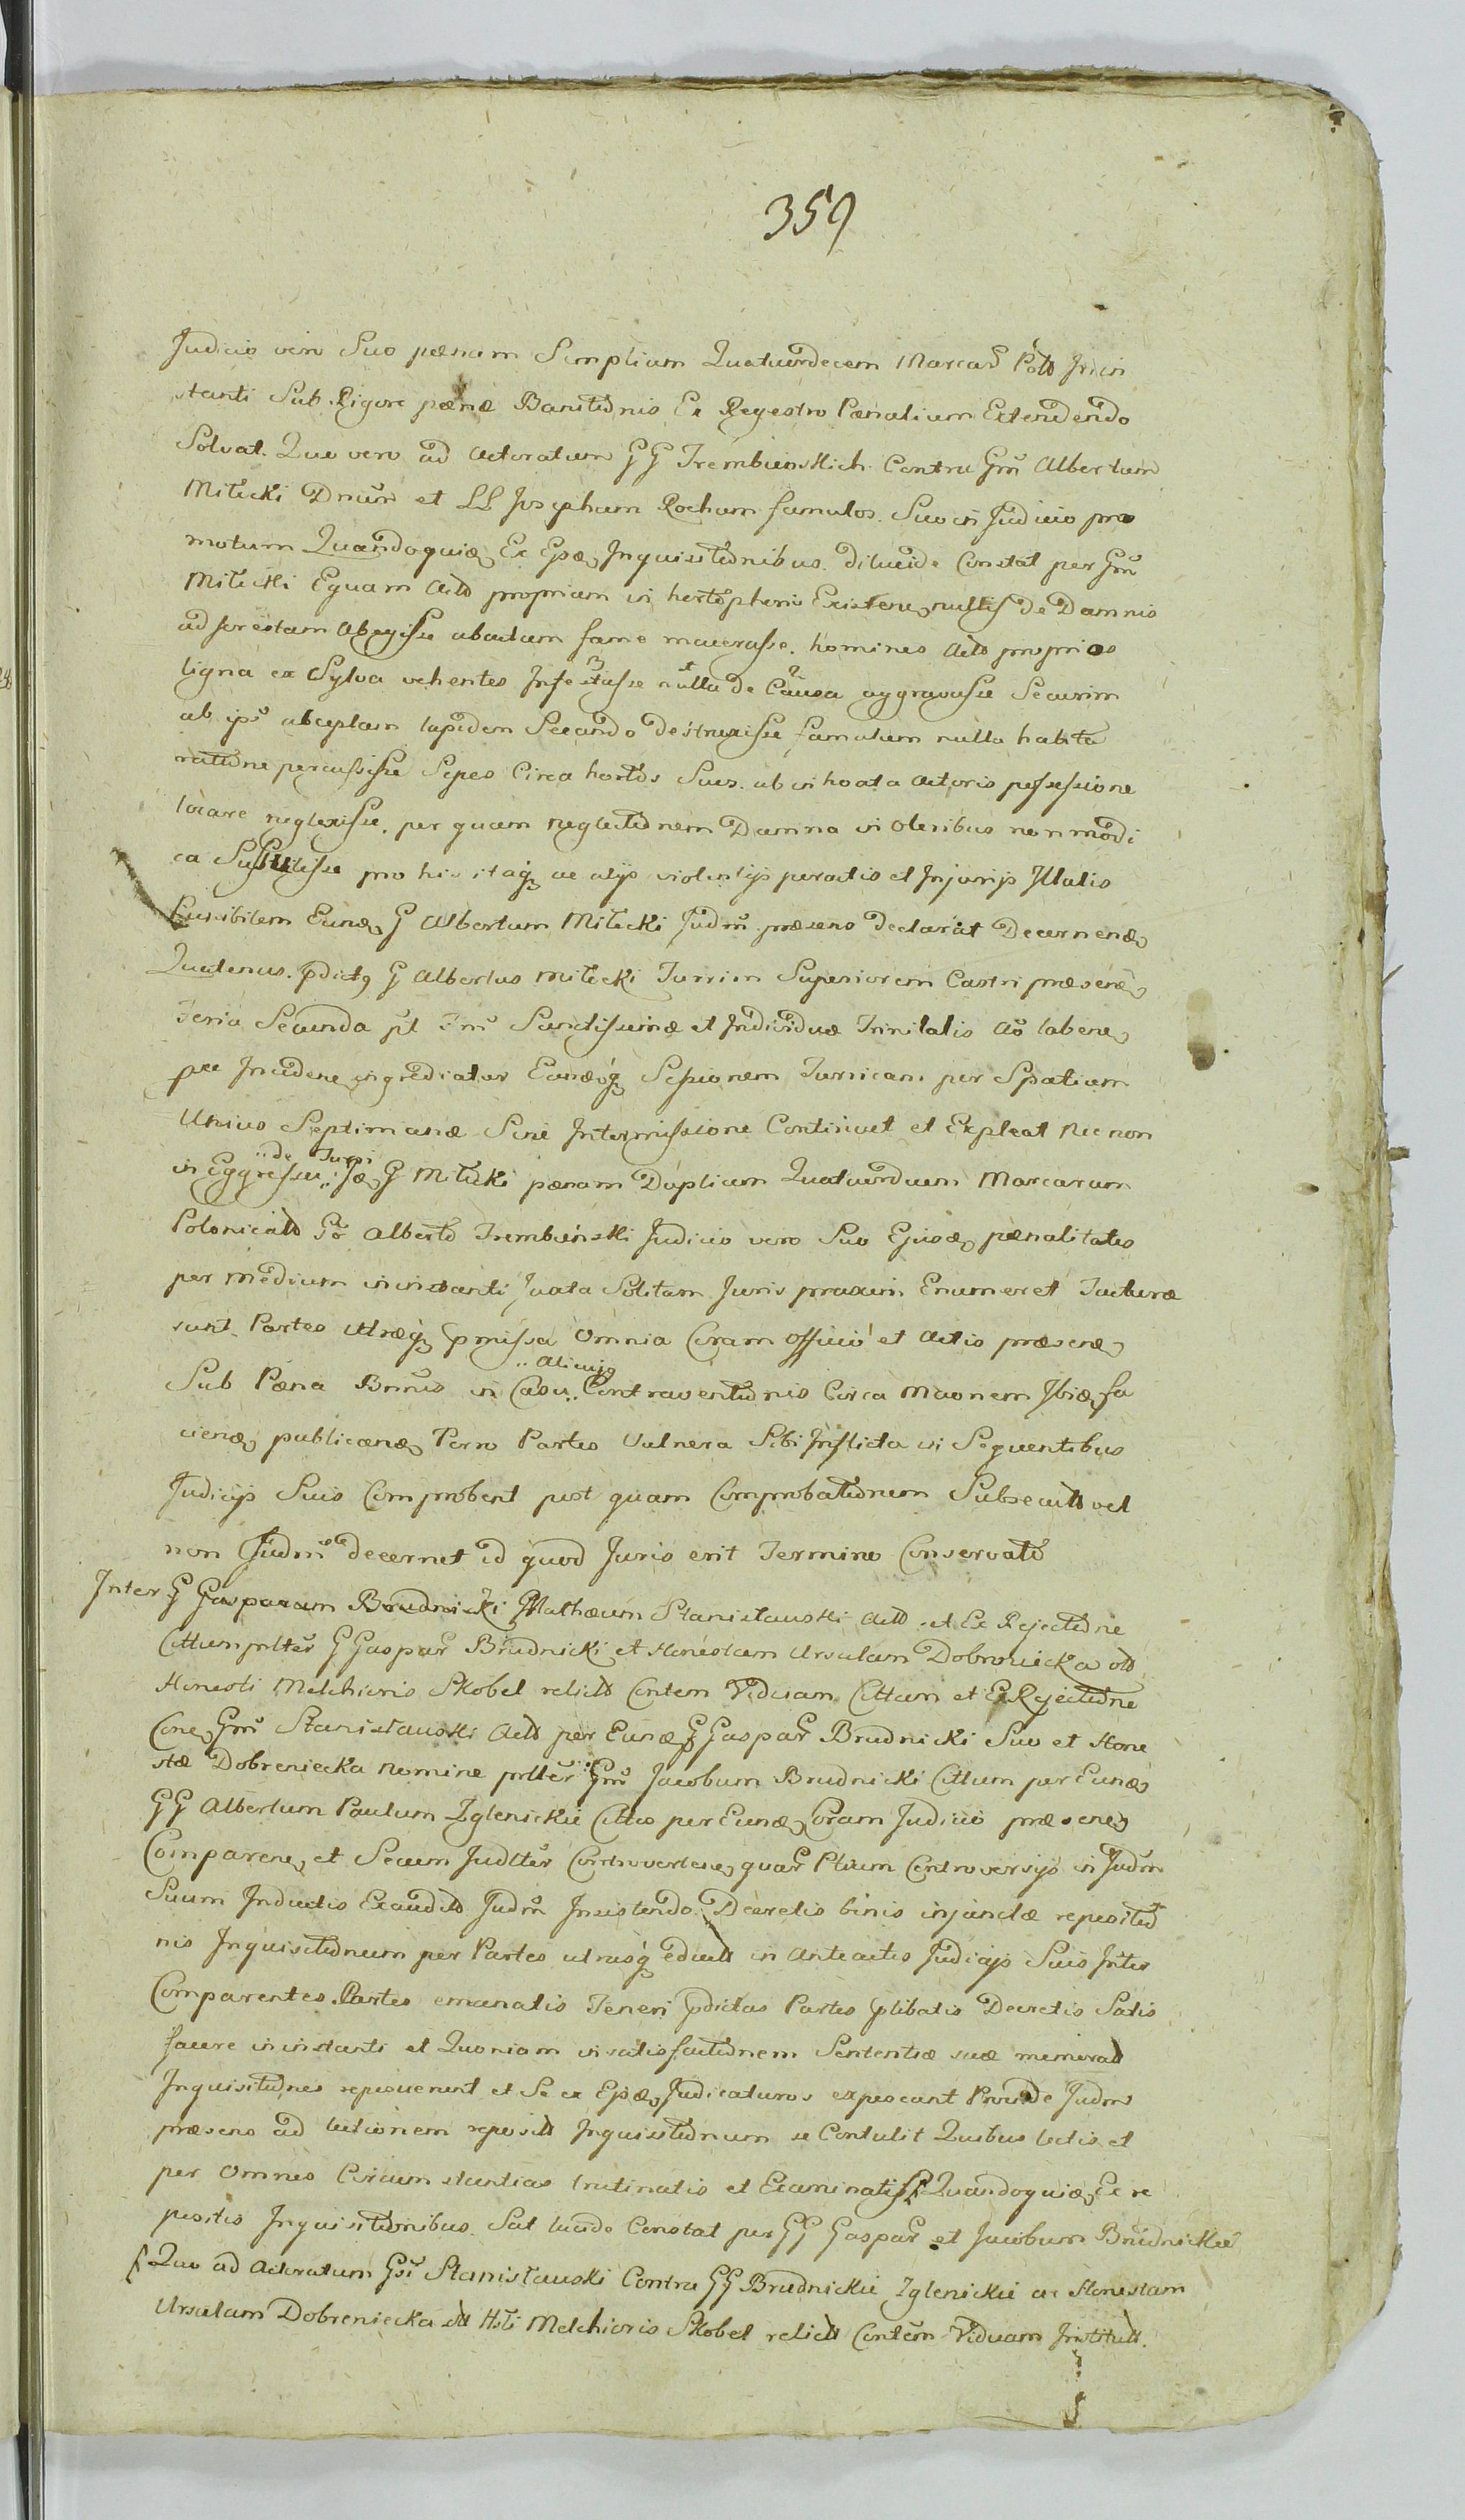 359
Judicio vero Suo pœnam Simplium Quatuordecem Marcar Polł Inin
stanti Sub Rigore pœnæ Banitionis Ex Regestro Pœnalium Extendendo
Solvat. Quo vero ad Actoratum GG Trembinskich Contra Gm Albertum
Miłecki Dnum et LL Josephum Rochum famulos. Suo in Judicio pro
motum Quandoquid Ex Ejsd Inquisitionibus dilucide Constat per Gm
Miłecki Equam propriam in Existen nullis de Damnis
ad forestam Abegisse abactam fame macerasse. homines proprios
ligna ex Sylva vehentes Infestasse nulla de Causa aggravasse Securim
ab ips abceptam lapidem Secando destruxisse famulum nulla habita
ratione percussisse Sepes Circa hortos Suos ab inhoata Actoris possessione
locare neglexisse, per quam neglectionem Damna in oleribus non modi
ca pro his itaq ac alijs violentijs peractis et Injurijs Illatis
Eund G Albertum Miłecki Judm præsens declarat Decernend
Quatenus. pdictq G Albertus Miłecki Turrim Superiorem Castri præsen
Feria Secunda pt Sanctissimæ et Individuæ Trinitatis Ao laben
Inciden ingrediatur Eandq Sessionem Turricam per Spatium
Unius Septimanæ Sine Intermissione Continuet et Expleat Nec non
in Eggressu de Turri G Miłecki pænam Duplium Quatuordecem Marcarum
Polonical Go Alberto Trembinski Judicio vero Suo Ejusd pænalitates
per medium in instanti Juxta Solitam Juris praxim Enumeret
sunt Partes utræq pmissa Omnia Coram Officio et Actis præsen
Sub Pæna Bnnis in Casu Alicujq Contraventionis Circa Ibid fa
ciend publicand Porro Partes Vulnera Sibi Inflicta in Sequentibus
Judicijs Suis Comprobent post quam Comprobationem vel
non Judm decernet id quod Juris erit Termino Conservato
Inter G Gasparum Brudnicki Mathæum Stanisławski et Ex Rejectione
G Gaspar Brudnicki et Honestam Ursulam Dobroniecka
Honesti Melchioris Skobel Viduam Cittam et Ex Rejectione
Gm Stanisławski per Eund G Gaspar Brudnicki Suo et Hone
stæ Dobreniecka nomine Gm Jacobum Brudnicki Cittum per Eund
GG Albertum Paulum Zglenickie per Eund Coram Judicio præsen
Comparen et Secum Judltr Controverten quar Ptium Controversijs in Judm
Suum Inductis Exauditł Judm Insistendo Decretis binis injunctæ reposito
nis Inquisitionum per Partes utrasq in Anteactis Judicijs Suis Inter
Comparentes Partes emanatis Teneri pdictas Partes plibatis Decretis Satis
facere in instanti et Quoniam in satisfactionem Sententiæ suæ
Inquisitiones reposuerunt et Se ex Ejsd Judicaturos exposcunt Proinde Judm
præsens ad lectionem Inquisitionum se Contulit Quibus lectis et
per Omnes Circumstantias trutinatis et Examinatis Quandoquid Ex re
positis Inquisitionibus Sat lucide Constat per GG Gaspar et Jacobum Brudnickie
Quo ad Actoratum Gsi Stanisławski Contra GG Brudnickie Zglenickie ac Honestam
Ursulam Dobreniecka Melchioris Skobel Viduam